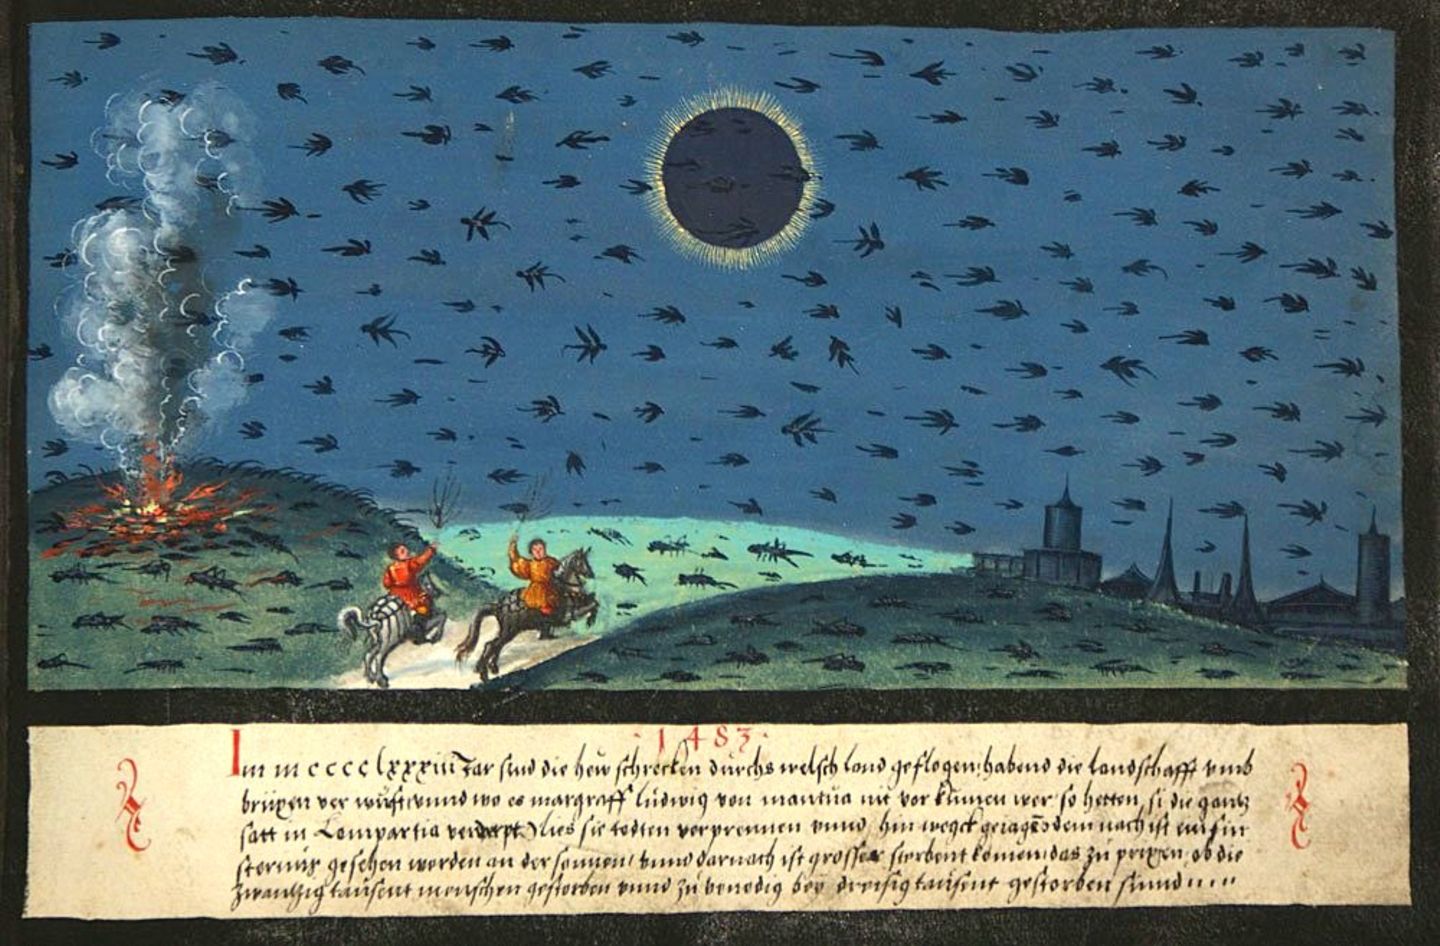 · 1 4 8 3 ·
Im m c c c c lxxxiii Jar sind die hew schrecken durchs welsch land geflogen, habend die landschafft vmb
brixen ver wust vnnd wo es margraff ludwig von mantua nit vor kumen wer so hetten si die gantz
satt in Lompartia verderpt lies sie todten verprennen vnnd hin wegck geiagen dem nach ist ein fin
sternus gesehen worden an der sonnen, vnnd darnach ist grosser sterbent komen das zu prixen ob die
zwantzig tausent menschen gestorben vnnd zu venedig bey dreisig tausent gestorben sinnd